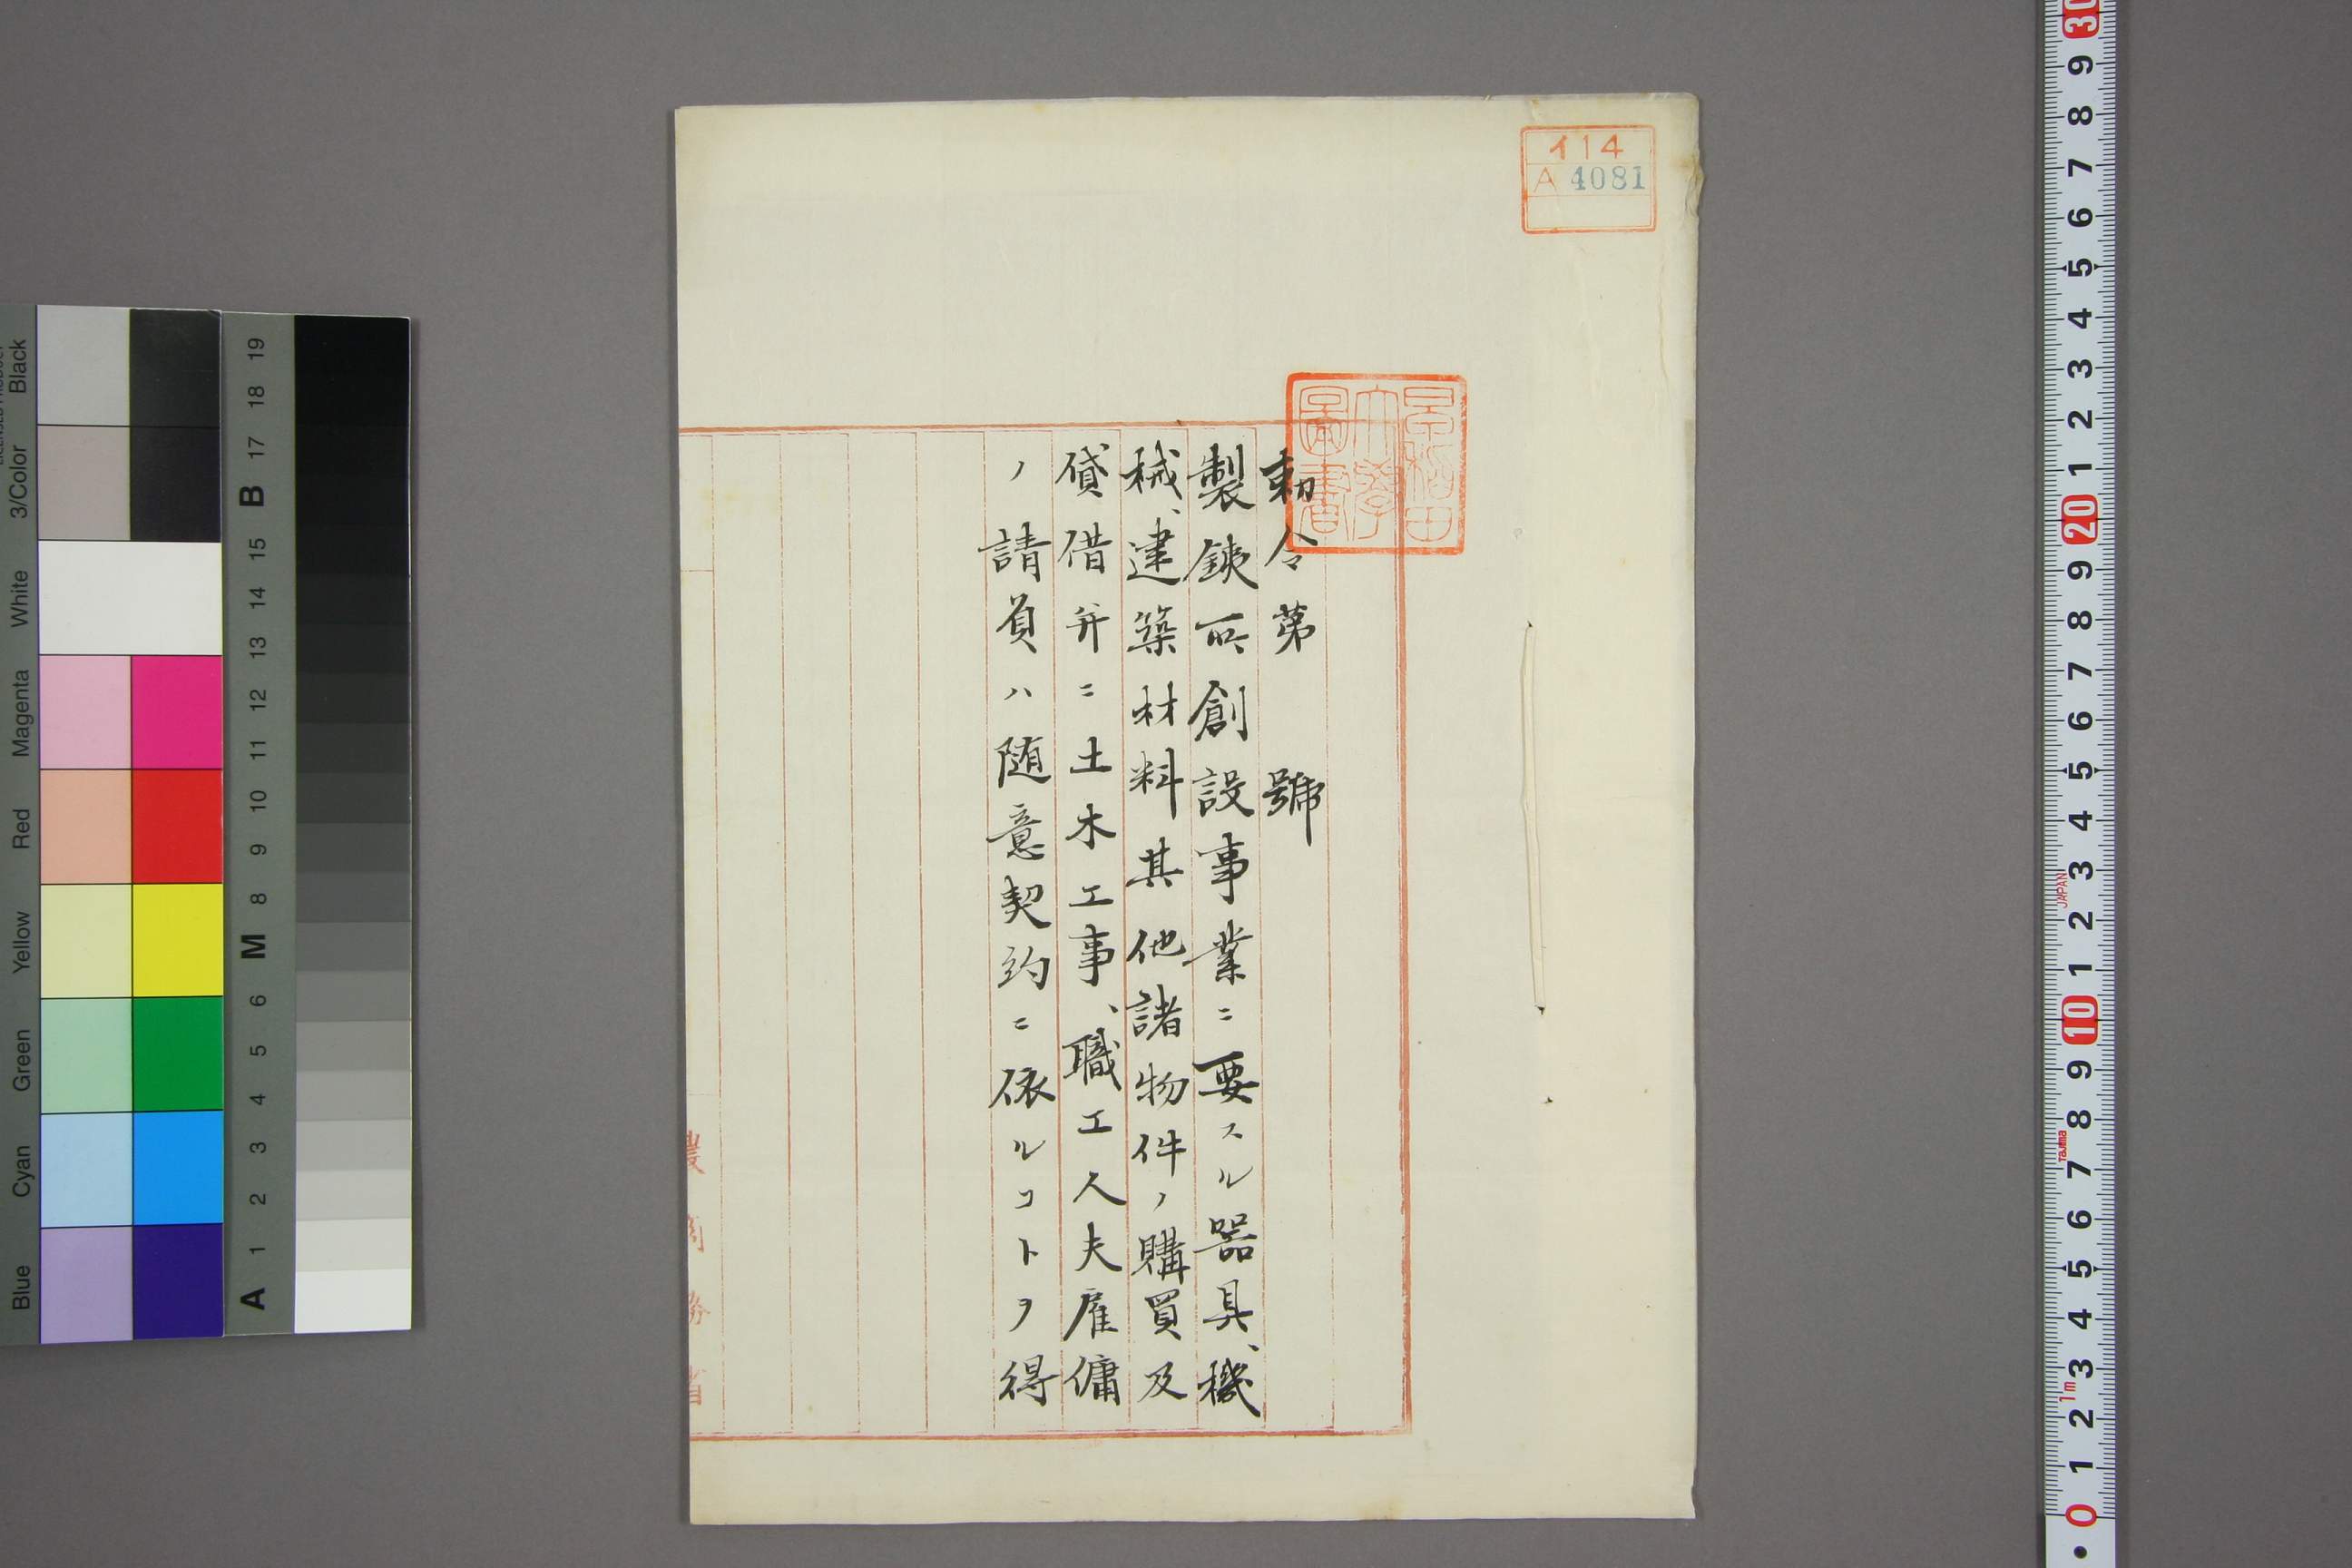 イ14
A 4081
早稲田
大學
圖書
勅令第　號
製鉄所創設事業ニ要スル器具、機
械、建築材料其他諸物件ノ購買及
貸借并ニ土木工事、職工人夫雇傭
ノ請負ハ随意契約ニ依ルコトヲ得
農商務省
Black
3/Color
White
Magenta
Red
Yellow
Green
Cyan
Blue
19
18
17
B
15
14
13
12
11
10
9
8
M
6
5
4
3
2
1
A
30
9
8
7
6
5
4
3
2
1
20
9
8
7
6
5
4
3
JAPAN
2
1
10
9
8
Tajima
7
6
5
4
3
1m
2
1
0